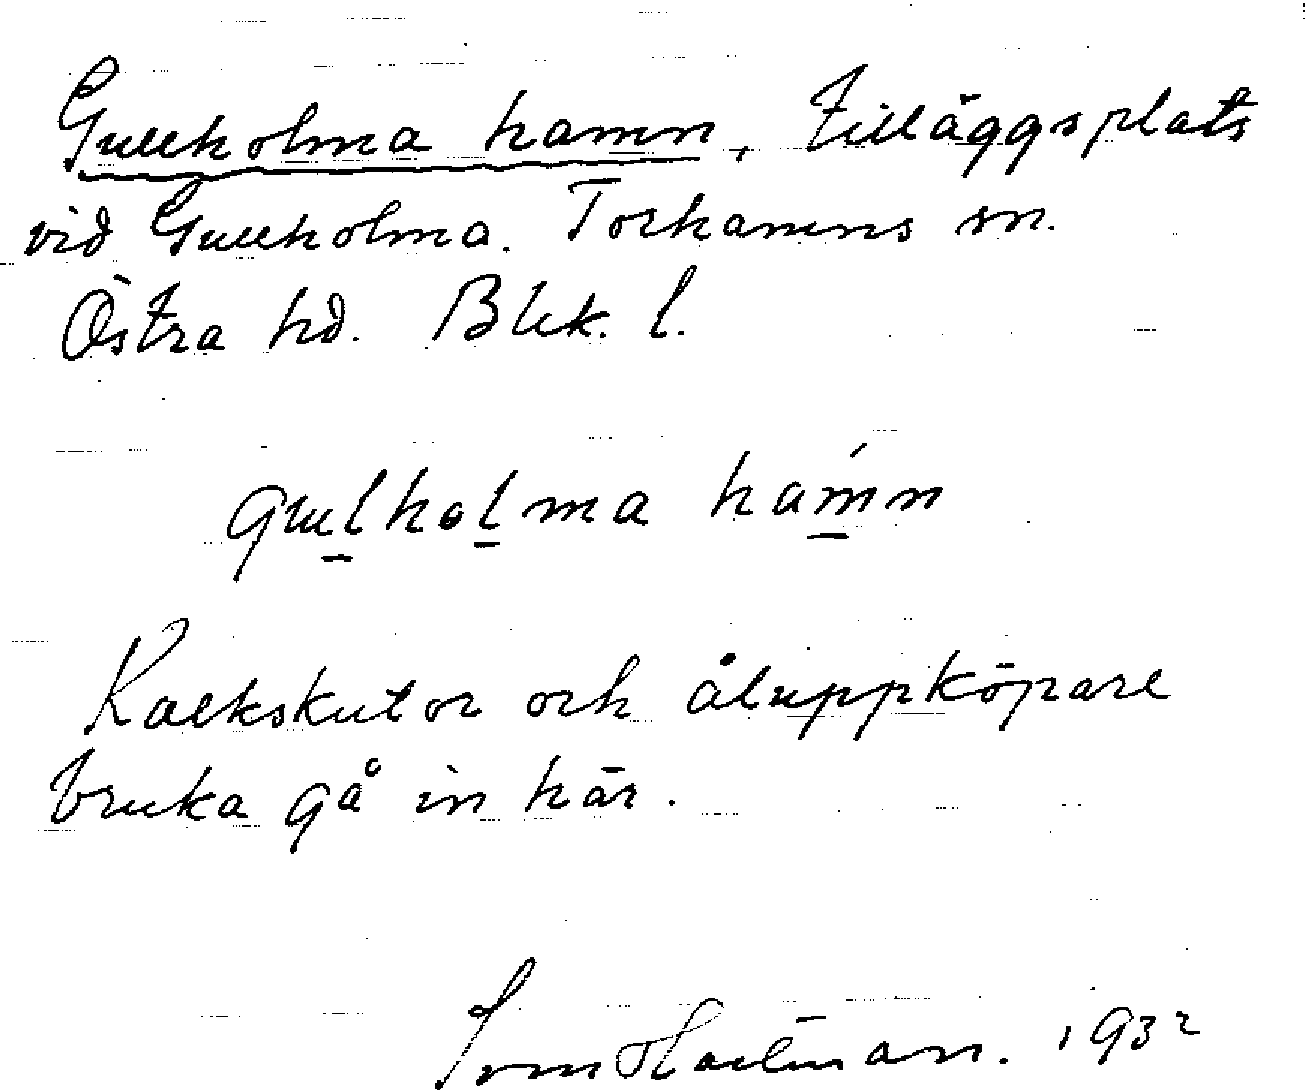 Gullholma hamn, Tilläggsplats
vid Gullholma. Torhamns sn.
Östra hd. Blek. l.
gulholma hamn
Kalkskutor och åluppköpare
bruka gå in här.
1932